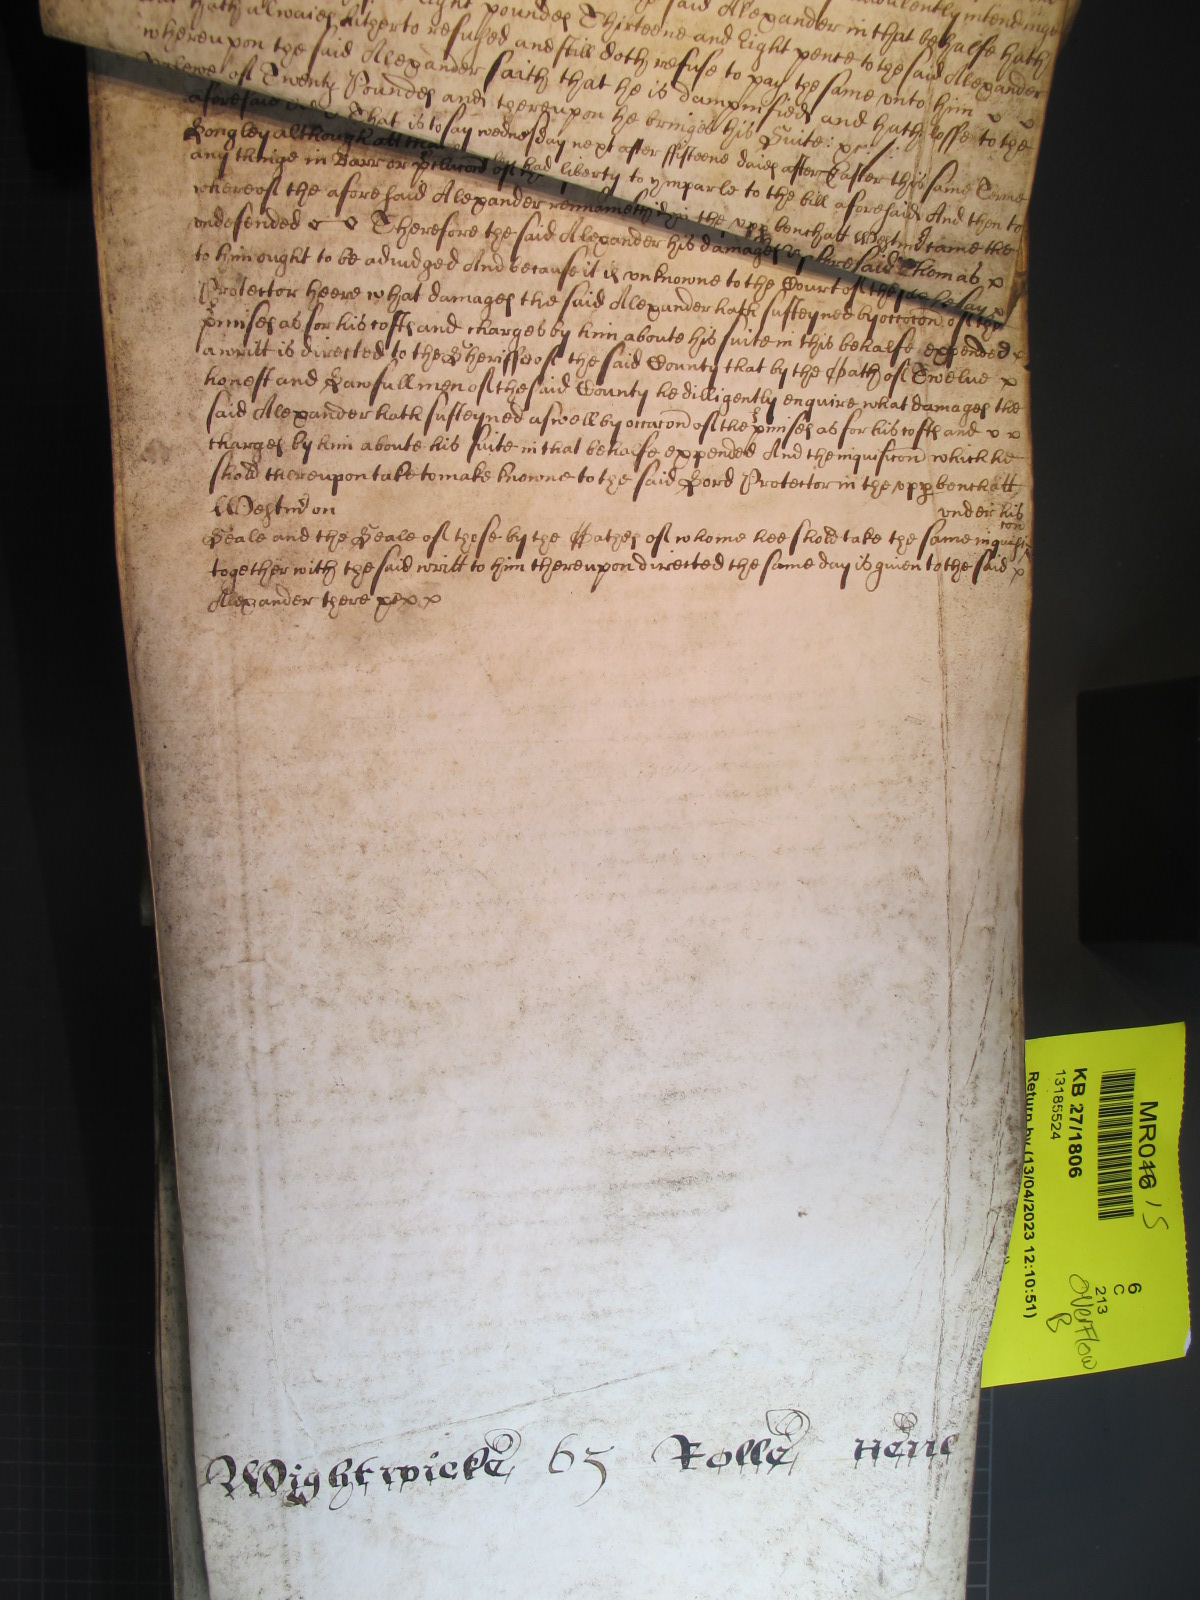 fraudulently intendinge
hath alwaies hitherto refused and still doth refuse to pay the same unto him
eight poundes Thirteene and Eight pence to the said Alexander
said Alexander in that behalfe hath
whereupon the said Alexander saith that he is dampnified and hath losse to the
valewe of Twenty Poundes and thereupon he bringes his Suite: x
aforesaid That is to say wednesday next after ffifteene daies after Easter this same Terme
had liberty to ymparle to the bill aforesaid And then to
Longley although att
any thinge in Barr or
whereof the aforesaid Alexander remayneth
in the upp bench att Westmr came the
undefended Therefore the said Alexander his damages
aforesaid Thomas x
to him ought to be adiudged And because it is unknowne to the Court of the
Protector heere what damages the said Alexander hath susteyned by occacon of the
pmises as for his costs and charges by him aboute his suite in this behalfe expended x
a writt is directed to the Sheriffe of the said County that by the Oath of Twelve x
honest and Lawfull men of the said County he dilligently enquire what damages the
said Alexander hath susteyned aswell by occacon of the pmises as for his costs and
charges by him aboute his suite in that behalfe expended And the inquisicon which he
shold thereupon take to make knowne to the said Lord Protector in the upp bench att
Westmr on under his
Seale and the Seale of those by the Oathes of whome hee shold take the same inquisicon
together with the said writt to him thereupon directed the same day is given to the said x
Alexander there x x x
Wightwicke 65 Rolle
MR046 15
KB 27/1806
13185524
Return by (13/04/2023 12:10:51)
6
C
213
Overflow
B